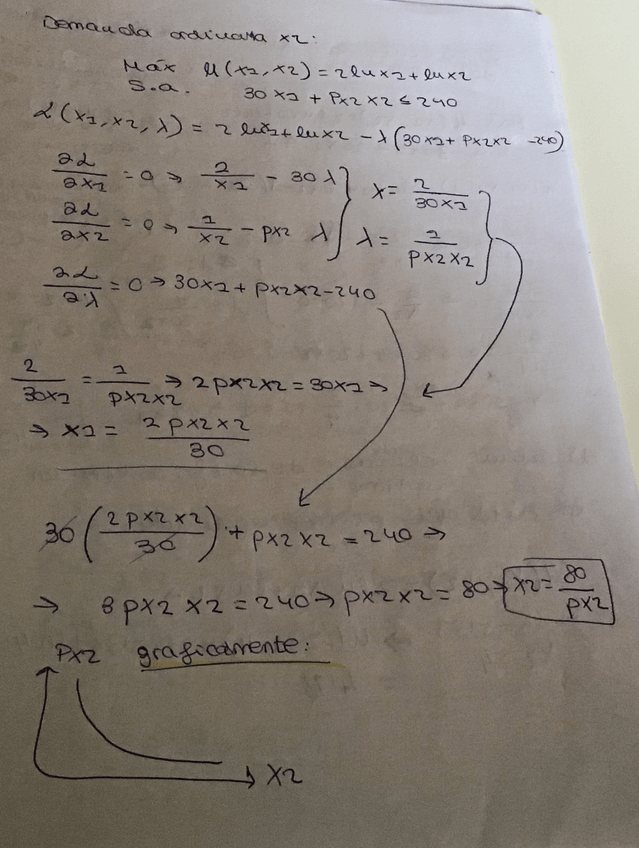 Demanda ordinaria x2:
Máx U(x1,x2) = 2lnx1+lnx2
s.a. 30x1 + Px2x2 ≤ 240
L(x1,x2,λ) = 2 lnx1+lnx2 - λ(30x1+ Px2x2 -240)
∂L/∂x1 = 0 ⇒ 2/x1 - 30λ } λ= 2/30x1
∂L/∂x2 = 0 ⇒ 1/x2 - px2 λ } λ= 1/px2x2
∂L/∂λ = 0 ⇒ 30x1+ px2x2-240
2/30x1 = 1/px2x2 ⇒ 2px2x2 = 30x1 ⇒
⇒ x1 = 2px2x2/30
30(2px2x2/30) + px2x2 = 240 ⇒
⇒ 3px2x2 = 240 ⇒ px2x2 = 80 ⇒ x2 = 80/px2
Px2 graficamente:
x2